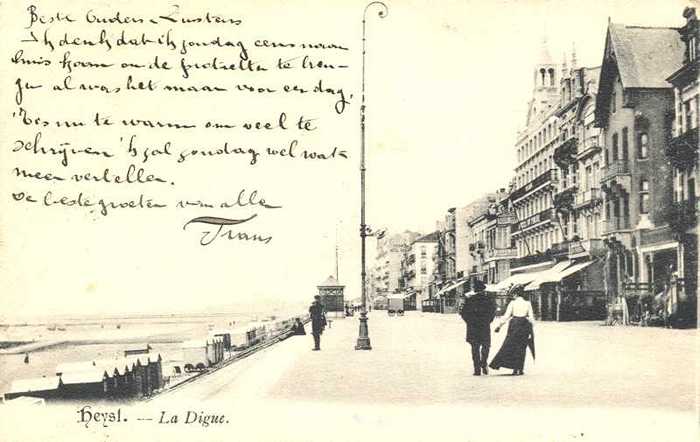 Beste Ouders & Zusters
Ik denk dat ik zondag eens naar
huis kom om de portretten te bren-
gen al was het maar voor een dag,
't is nu te warm om veel te
schrijven 'k zal zondag wel wat
meer vertellen.
de beste groeten van alle
Frans
Heyst. — La Digue.